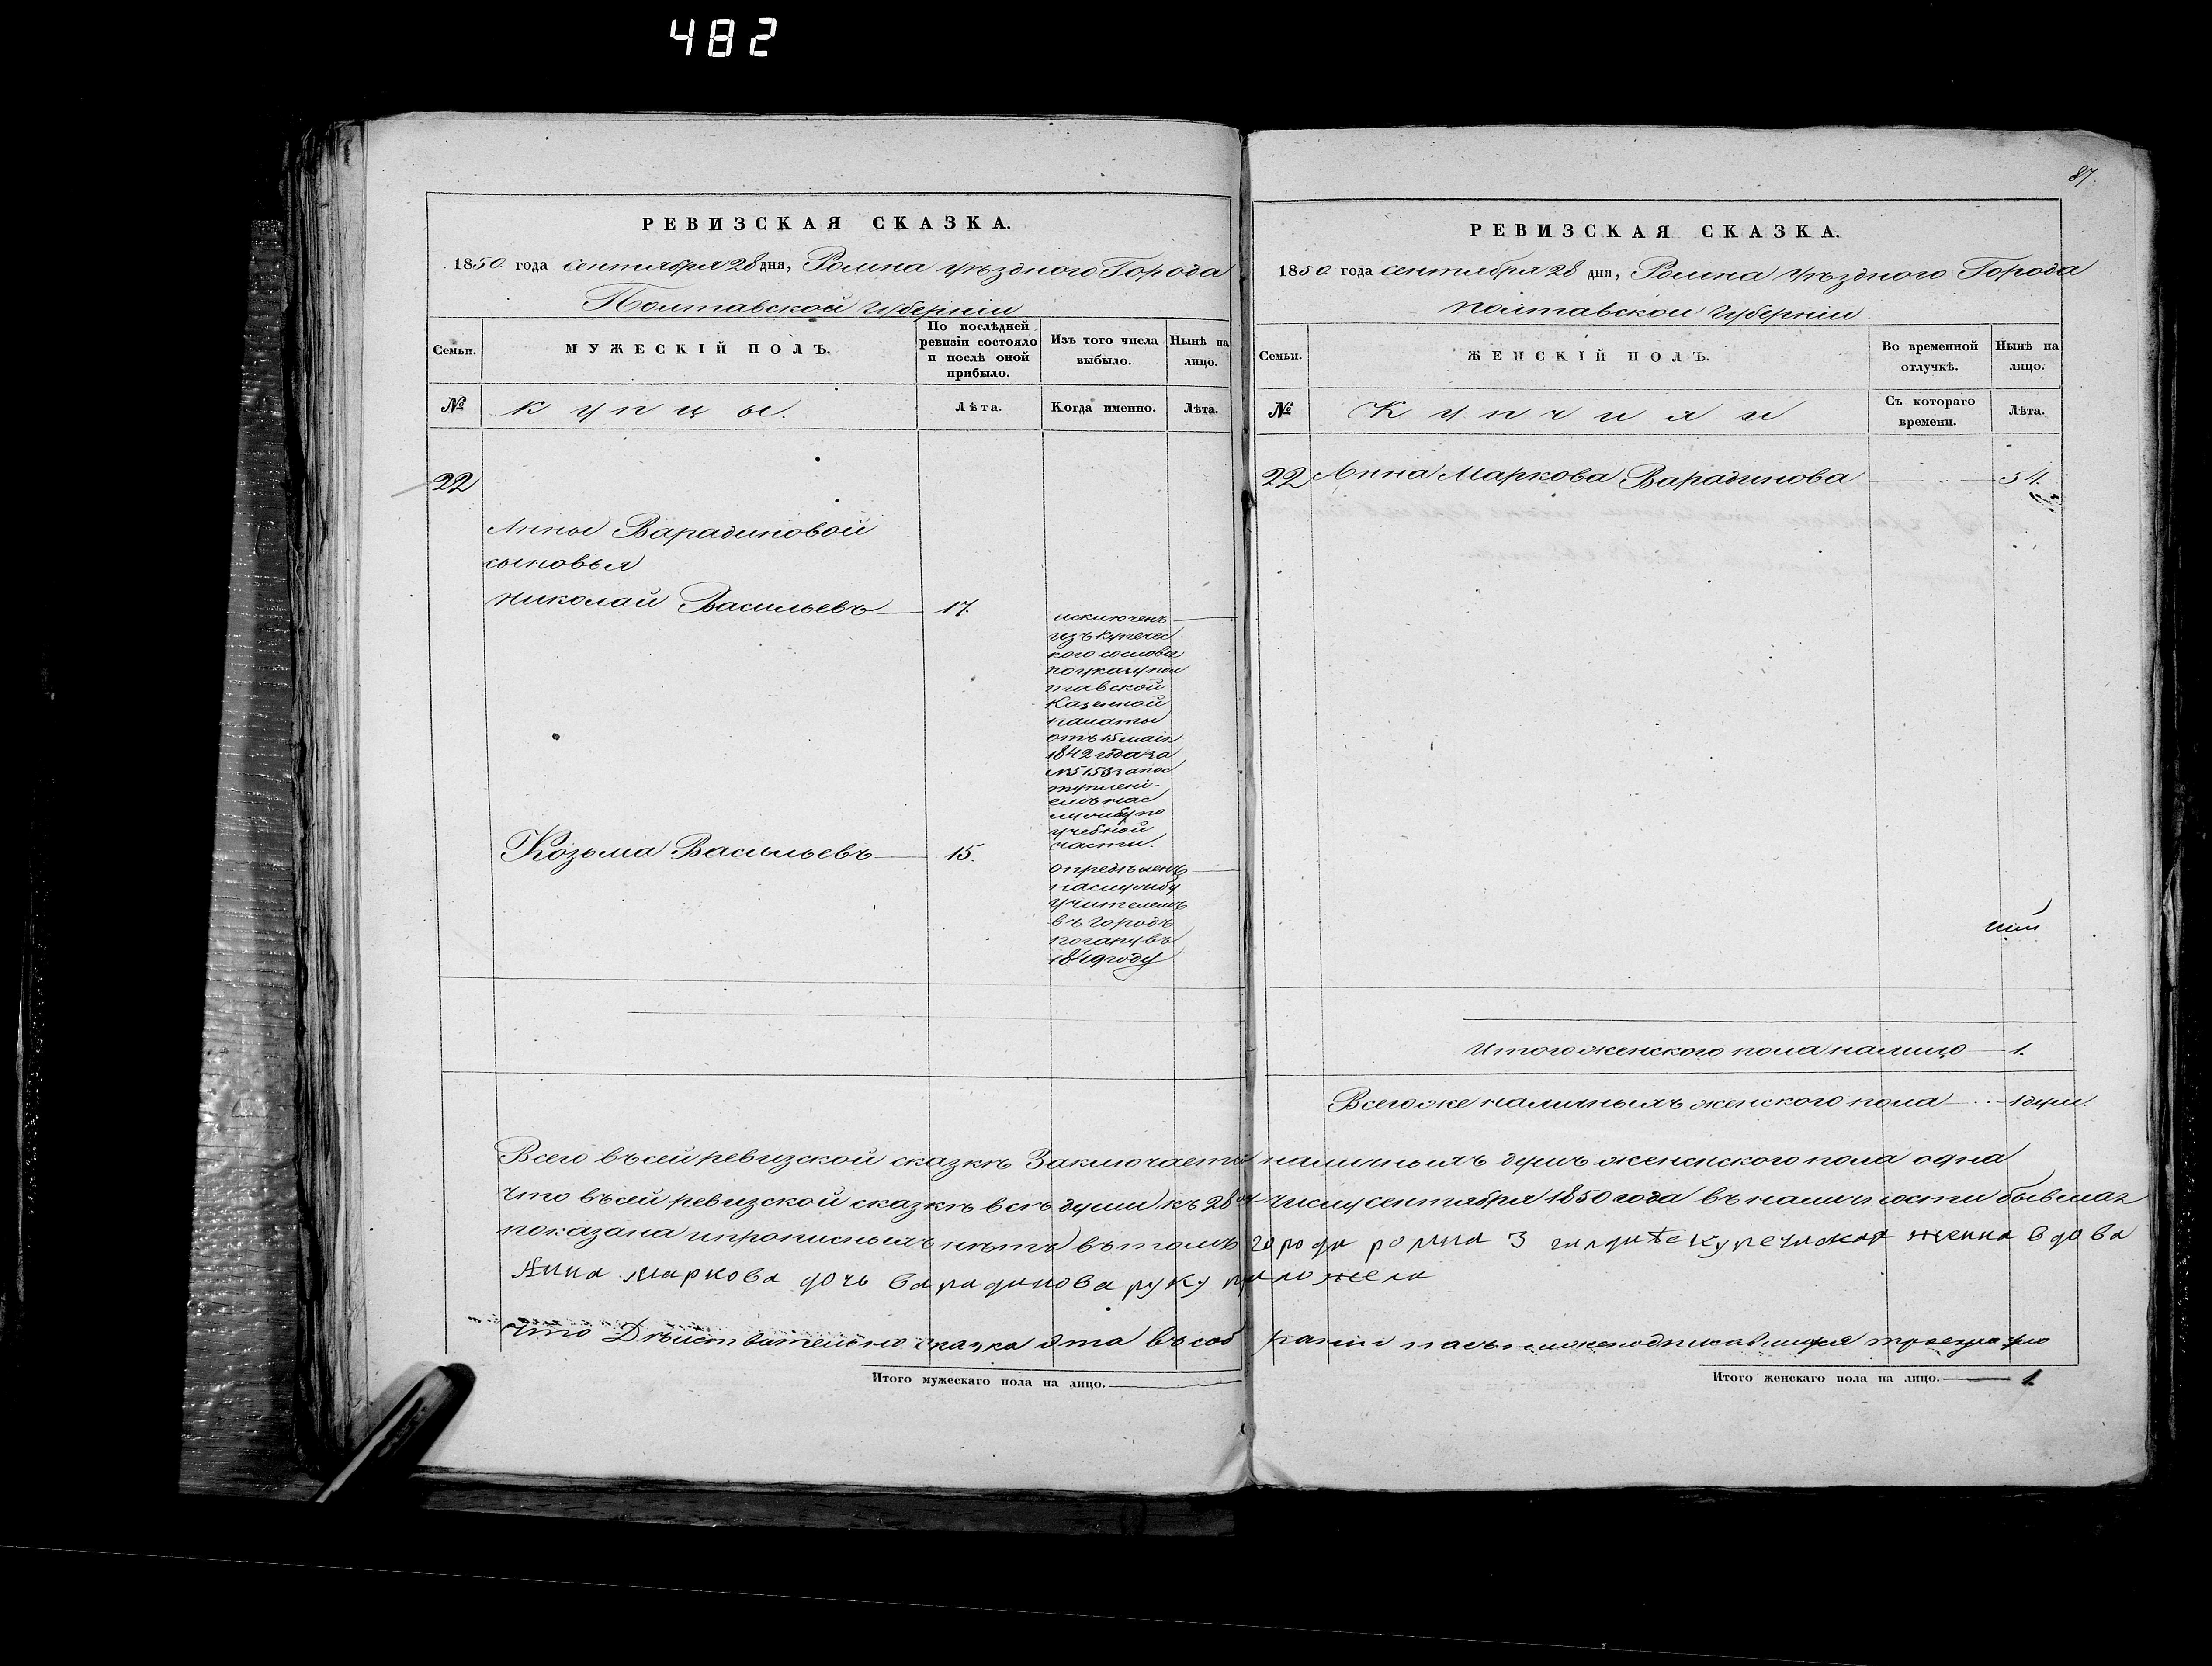 482
87.
РЕВИЗСКАЯ СКАЗКА.
1850. года сентября 28 дня, Ромна уѣздного Города
Полтавской Губерніи
Семьи.
МУЖЕСКІЙ ПОЛЪ.
По послѣдней ревизіи состояло и послѣ оной прибыло.
Изъ того числа выбыло.
Нынѣ на лицо.
№
Купцы.
Лѣта.
Когда именно.
Лѣта.
22
Анны Варадиновой
сыновья
Николай Васильевъ 17.
исключенъ
изъ купечес
кого сословія
по указу пол
тавской
Казенной
палаты
отъ 15 мая
1842 года за
№ 5153 за пос
туплені-
емъ на с
лужбу по
учебной
части.
Козьма Васильевъ 15.
опредѣленъ
на службу
учителемъ
въ городѣ
въ
1849 году
Всего въ сей ревизской сказкѣ Заключается наличныхъ душъ женского пола одна
Что въ сей ревизской сказкѣ всѣ души къ 28 числу сентября 1850 года въ наличности бывшая
показана и прописныхъ нѣтъ въ томъ города ромна 3 гилдіи купеческая женна вдова
Анна маркова дочь варадинова руку приложела
Что Дѣйствительно сказка эта въ собраніи насъ нижеподписавшихся
Итого мужескаго пола на лицо.
РЕВИЗСКАЯ СКАЗКА.
1850. года сентября 28 дня, Ромна уѣздного Города
Полтавской Губерніи
Семьи.
ЖЕНСКІЙ ПОЛЪ.
Во временной отлучкѣ.
Нынѣ на лицо.
№
Купчихи
Съ котораго времени.
Лѣта.
22 Анна Маркова Варадинова 54.
Итого женского пола налицо 1.
Всего же наличныхъ женского пола 1 душа.
Итого женскаго пола на лицо. 1.